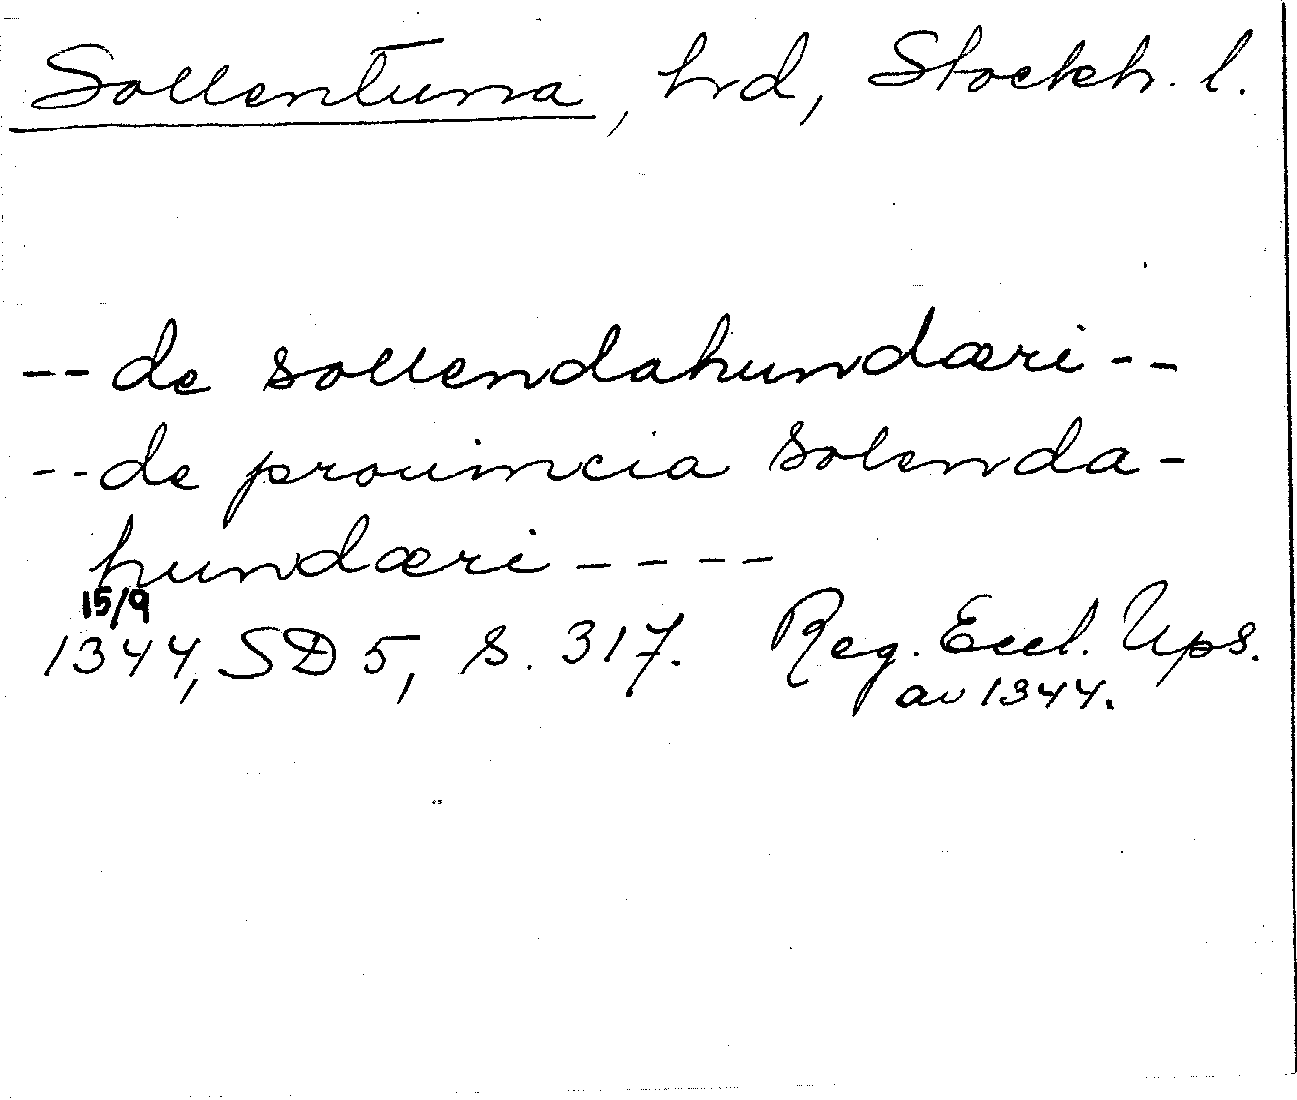 Sollentuna, hrd, Stockh. l.
-- de sollendahundæri --
-- de prouincia solenda-
hundæri ----
15/9
1344, SD 5, s. 317. Reg. Eccl. Ups.
av 1344.